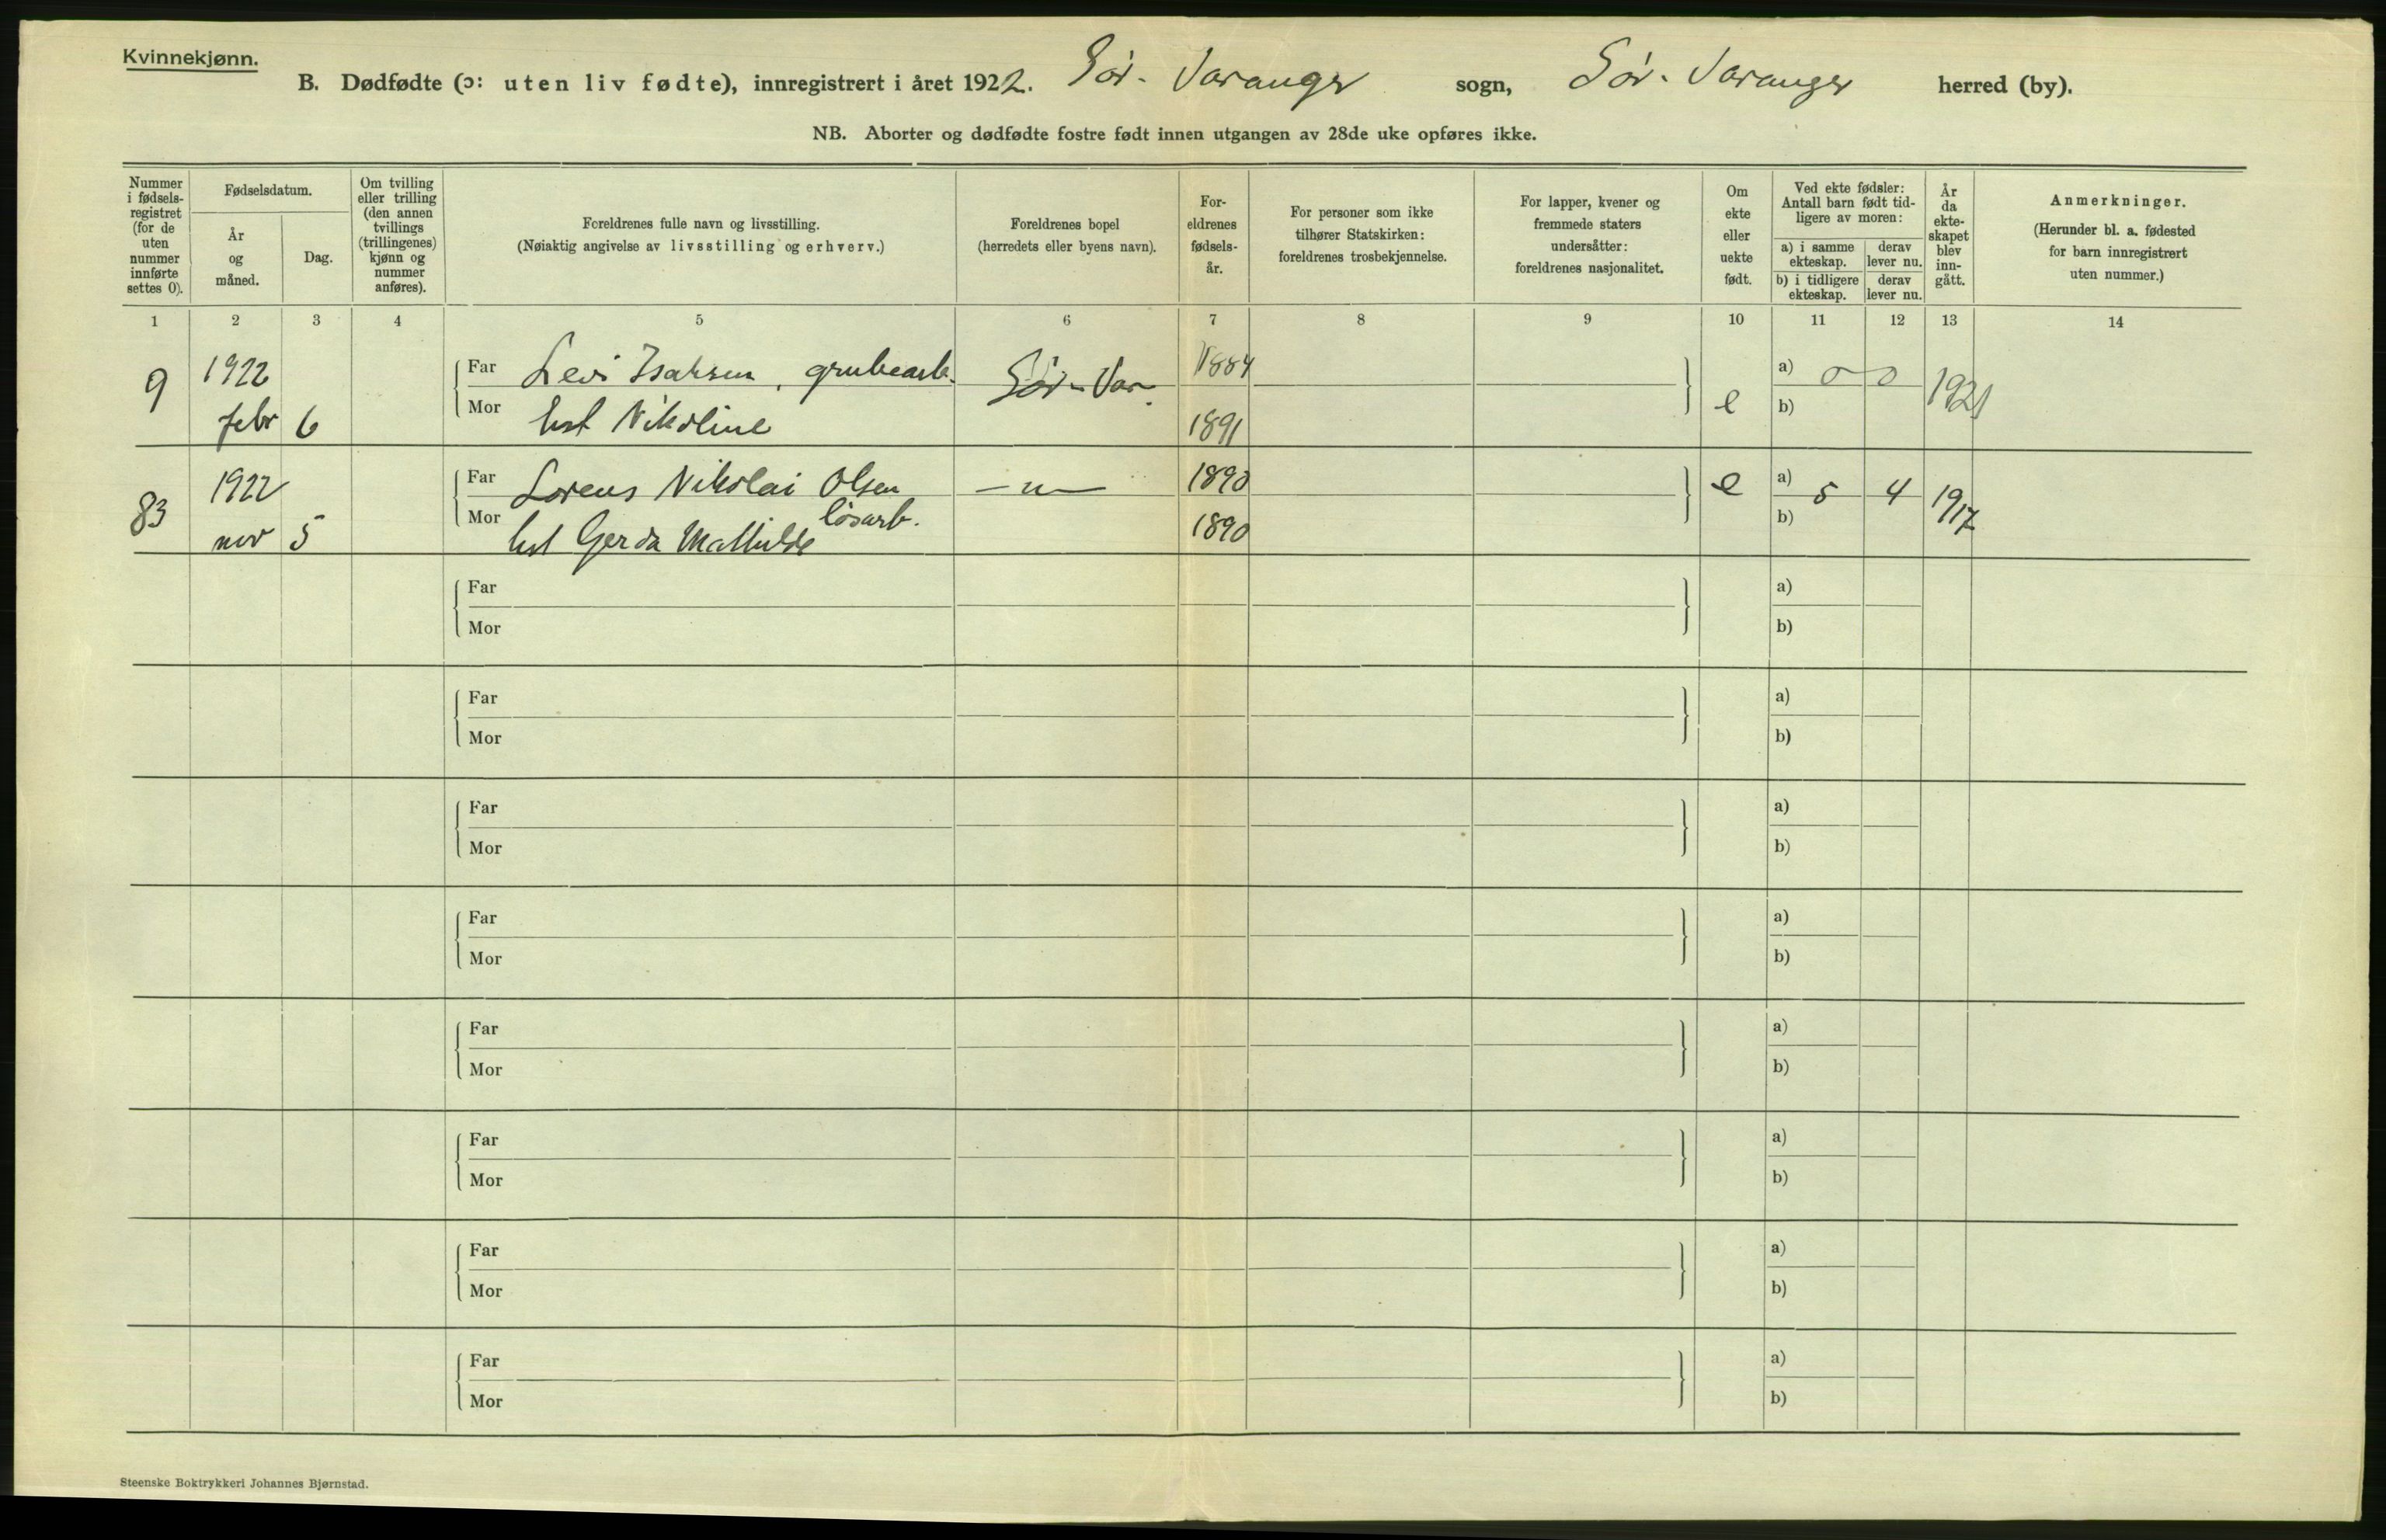 Kvinnekjønn.
B. Dødfødte (ɔ: uten liv fødte), innregistrert i året 1922. Sør-Varanger sogn, Sør-Varanger herred (by).
NB. Aborter og dødfødte fostre født innen utgangen av 28de uke opføres ikke.
Nummer i fødsels-registret (for de uten nummer innførte settes 0).
Fødselsdatum.
År og måned.
Dag.
Om tvilling eller trilling (den annen tvillings (trillingenes) kjønn og nummer anføres).
Foreldrenes fulle navn og livsstilling.
(Nøiaktig angivelse av livsstilling og erhverv.)
Foreldrenes bopel
(herredets eller byens navn).
For-eldrenes fødsels-år.
For personer som ikke tilhører Statskirken: foreldrenes trosbekjennelse.
For lapper, kvener og fremmede staters undersåtter: foreldrenes nasjonalitet.
Om ekte eller uekte født.
Ved ekte fødsler: Antall barn født tid-ligere av moren:
a) i samme ekteskap.
derav lever nu.
b) i tidligere ekteskap.
derav lever nu.
År da ekte-skapet blev inn-gått.
Anmerkninger.
(Herunder bl. a. fødested for barn innregistrert uten nummer.)
1 2 3 4 5 6 7 8 9 10 11 12 13 14
9 1922 Far Levi Isaksen, grubearb. Sør-Var. 1884 a) 0 0 1921
febr 6 Mor hst Nikoline 1891 e b)
83 1922 Far Lorens Nikolai Olsen —"— 1890 e a) 5 4 1917
løsarb.
nov 5 Mor hst Gerda Mathilde 1890 b)
Far a)
Mor b)
Far a)
Mor b)
Far a)
Mor b)
Far a)
Mor b)
Far a)
Mor b)
Far a)
Mor b)
Far a)
Mor b)
Far a)
Mor b)
Steenske Boktrykkeri Johannes Bjørnstad.